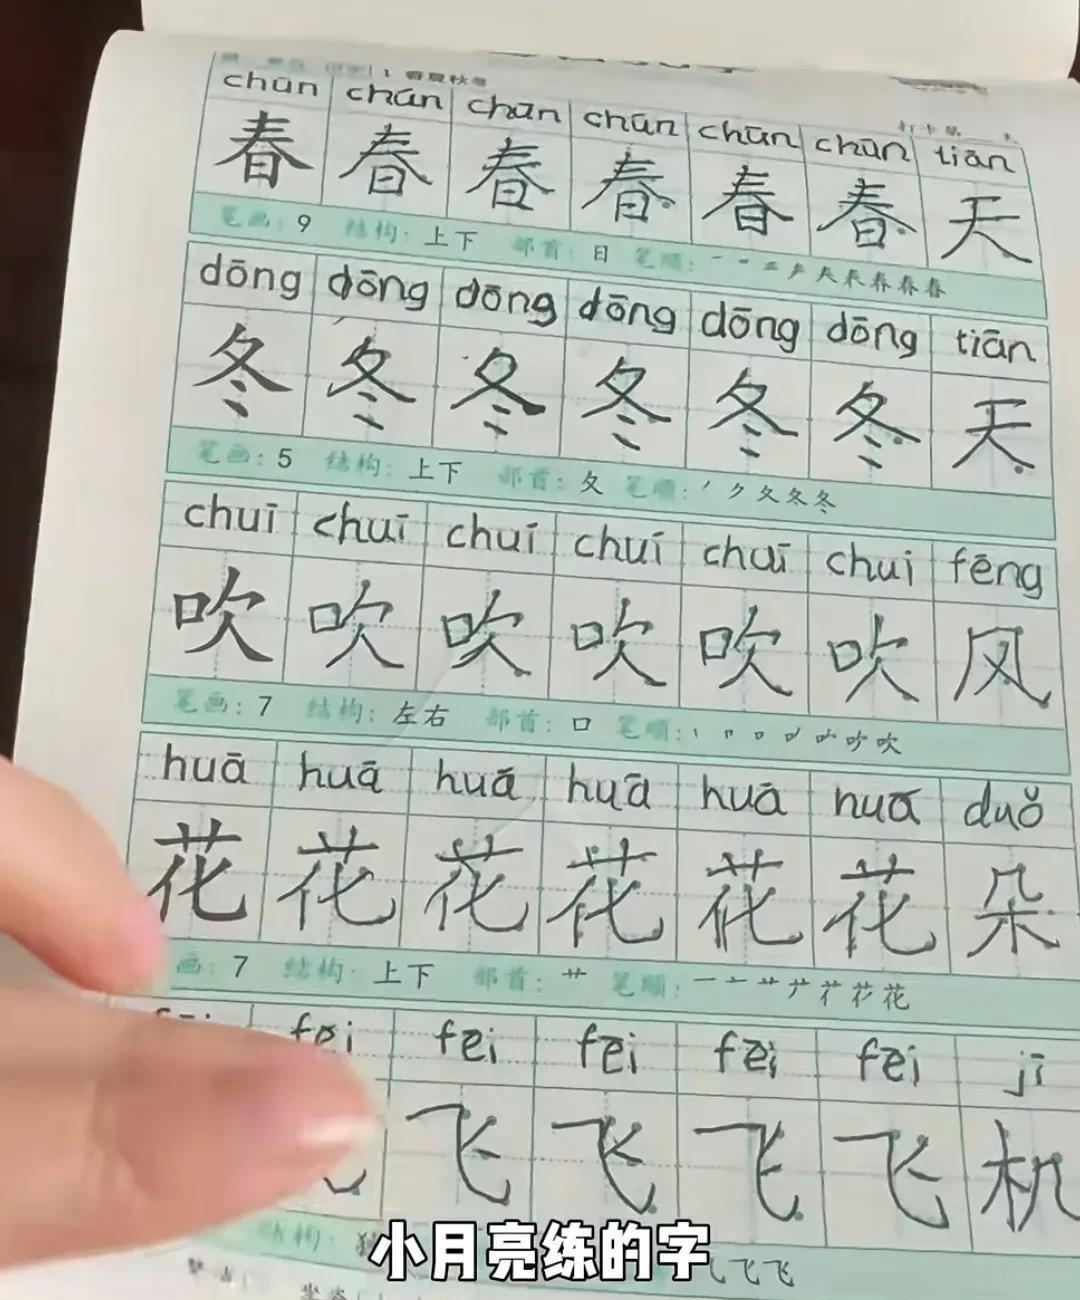 1 春夏秋冬
chūn chūn chūn chūn chūn chūn tiān
春 春 春 春 春 春 天
笔画: 9 结构: 上下 部首: 日 笔顺:
dōng dōng dōng dōng dōng dōng tiān
冬 冬 冬 冬 冬 冬 天
笔画: 5 结构: 上下 部首: 夂 笔顺: 丿 ク 夂 冬 冬
chuī chuī chuī chuī chuī chui fēng
吹 吹 吹 吹 吹 吹 风
笔画: 7 结构: 左右 部首: 口 笔顺:
huā huā huā huā huā huā duǒ
花 花 花 花 花 花 朵
画: 7 结构: 上下 部首: 艹 笔顺:
fēi fēi fēi fēi fēi jī
飞 飞 飞 飞 机
结构: 独
小月亮练的字